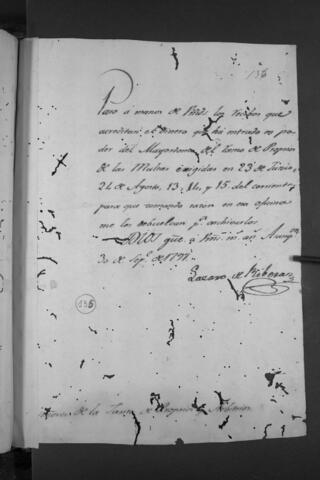 136
Paso á manos de Vmds los recibos que
acreditan el dinero que há entrado en po
der del Mayordomo del Ramo de Propios
de las Multas exigidas en 23 de Junio,
24 de Agosto, 13, 14, y 15 del corriente
para que tomando razon en su oficina
me los debuelvan pª archivarlos
DIOS gũe á Vms. mˢ. aˢ. Asumpⁿ
30 de Sepᵉ. de 1797
Lazaro de Ribera
136
de la Junta de Propios y Arbitrios